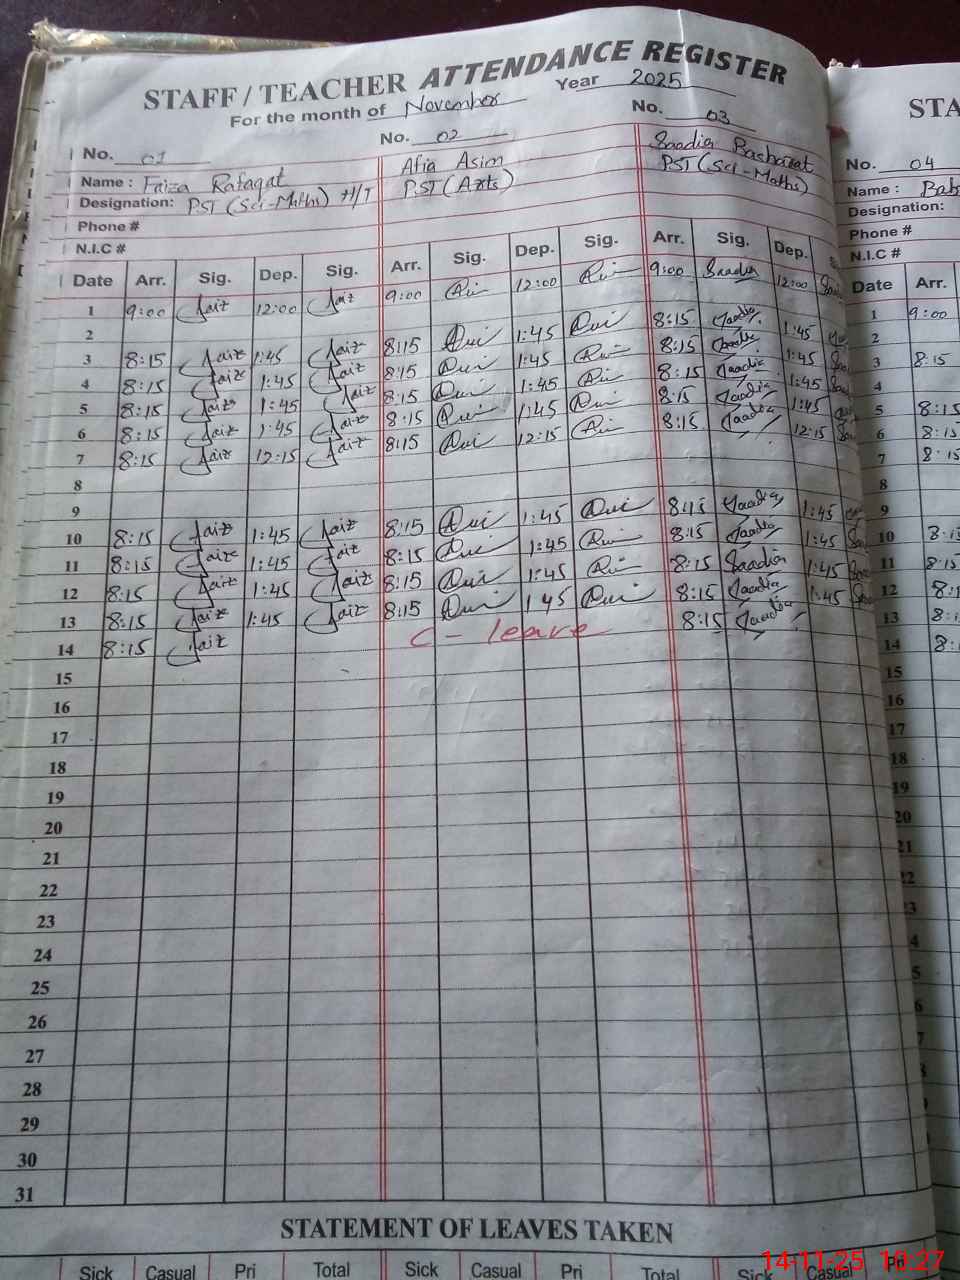 STAFF / TEACHER ATTENDANCE REGISTER
For the month of November Year 2025
No. 01 No. 02 No. 03
Name : Faiza Rafaqat Afia Asim Saadia Basharat
Designation: PST (Sci-Maths) H/T PST (Arts) PST (Sci-Maths)
Phone #
N.I.C #
Date Arr. Sig. Dep. Sig. Arr. Sig. Dep. Sig. Arr. Sig. Dep.
1 9:00 Faiz 12:00 Faiz 9:00 12:00 9:00 Saadia 12:00
2
3 8:15 Faiz 1:45 Faiz 8:15 1:45 8:15 Saadia 1:45
4 8:15 Faiz 1:45 Faiz 8:15 1:45 8:15 Saadia 1:45
5 8:15 Faiz 1:45 Faiz 8:15 1:45 8:15 Saadia 1:45
6 8:15 Faiz 1:45 Faiz 8:15 1:45 8:15 Saadia 1:45
7 8:15 Faiz 12:15 Faiz 8:15 12:15 8:15 Saadia 12:15
8
9
10 8:15 Faiz 1:45 Faiz 8:15 1:45 8:15 Saadia 1:45
11 8:15 Faiz 1:45 Faiz 8:15 1:45 8:15 Saadia 1:45
12 8:15 Faiz 1:45 Faiz 8:15 1:45 8:15 Saadia 1:45
13 8:15 Faiz 1:45 Faiz 8:15 1 45 8:15 Saadia 1:45
14 8:15 Faiz C - leave 8:15 Saadia
15
16
17
18
19
20
21
22
23
24
25
26
27
28
29
30
31
STATEMENT OF LEAVES TAKEN
Sick Casual Pri Total Sick Casual Pri Total Sick Casual
No. 04
Name :
Designation:
Phone #
N.I.C #
Date Arr.
1 9:00
3 8:15
4
5 8:15
6 8:15
7 8:15
8
9
10
11 8:15
12
13
14
15
16
17
18
19
20
21
14-11-25 10:27